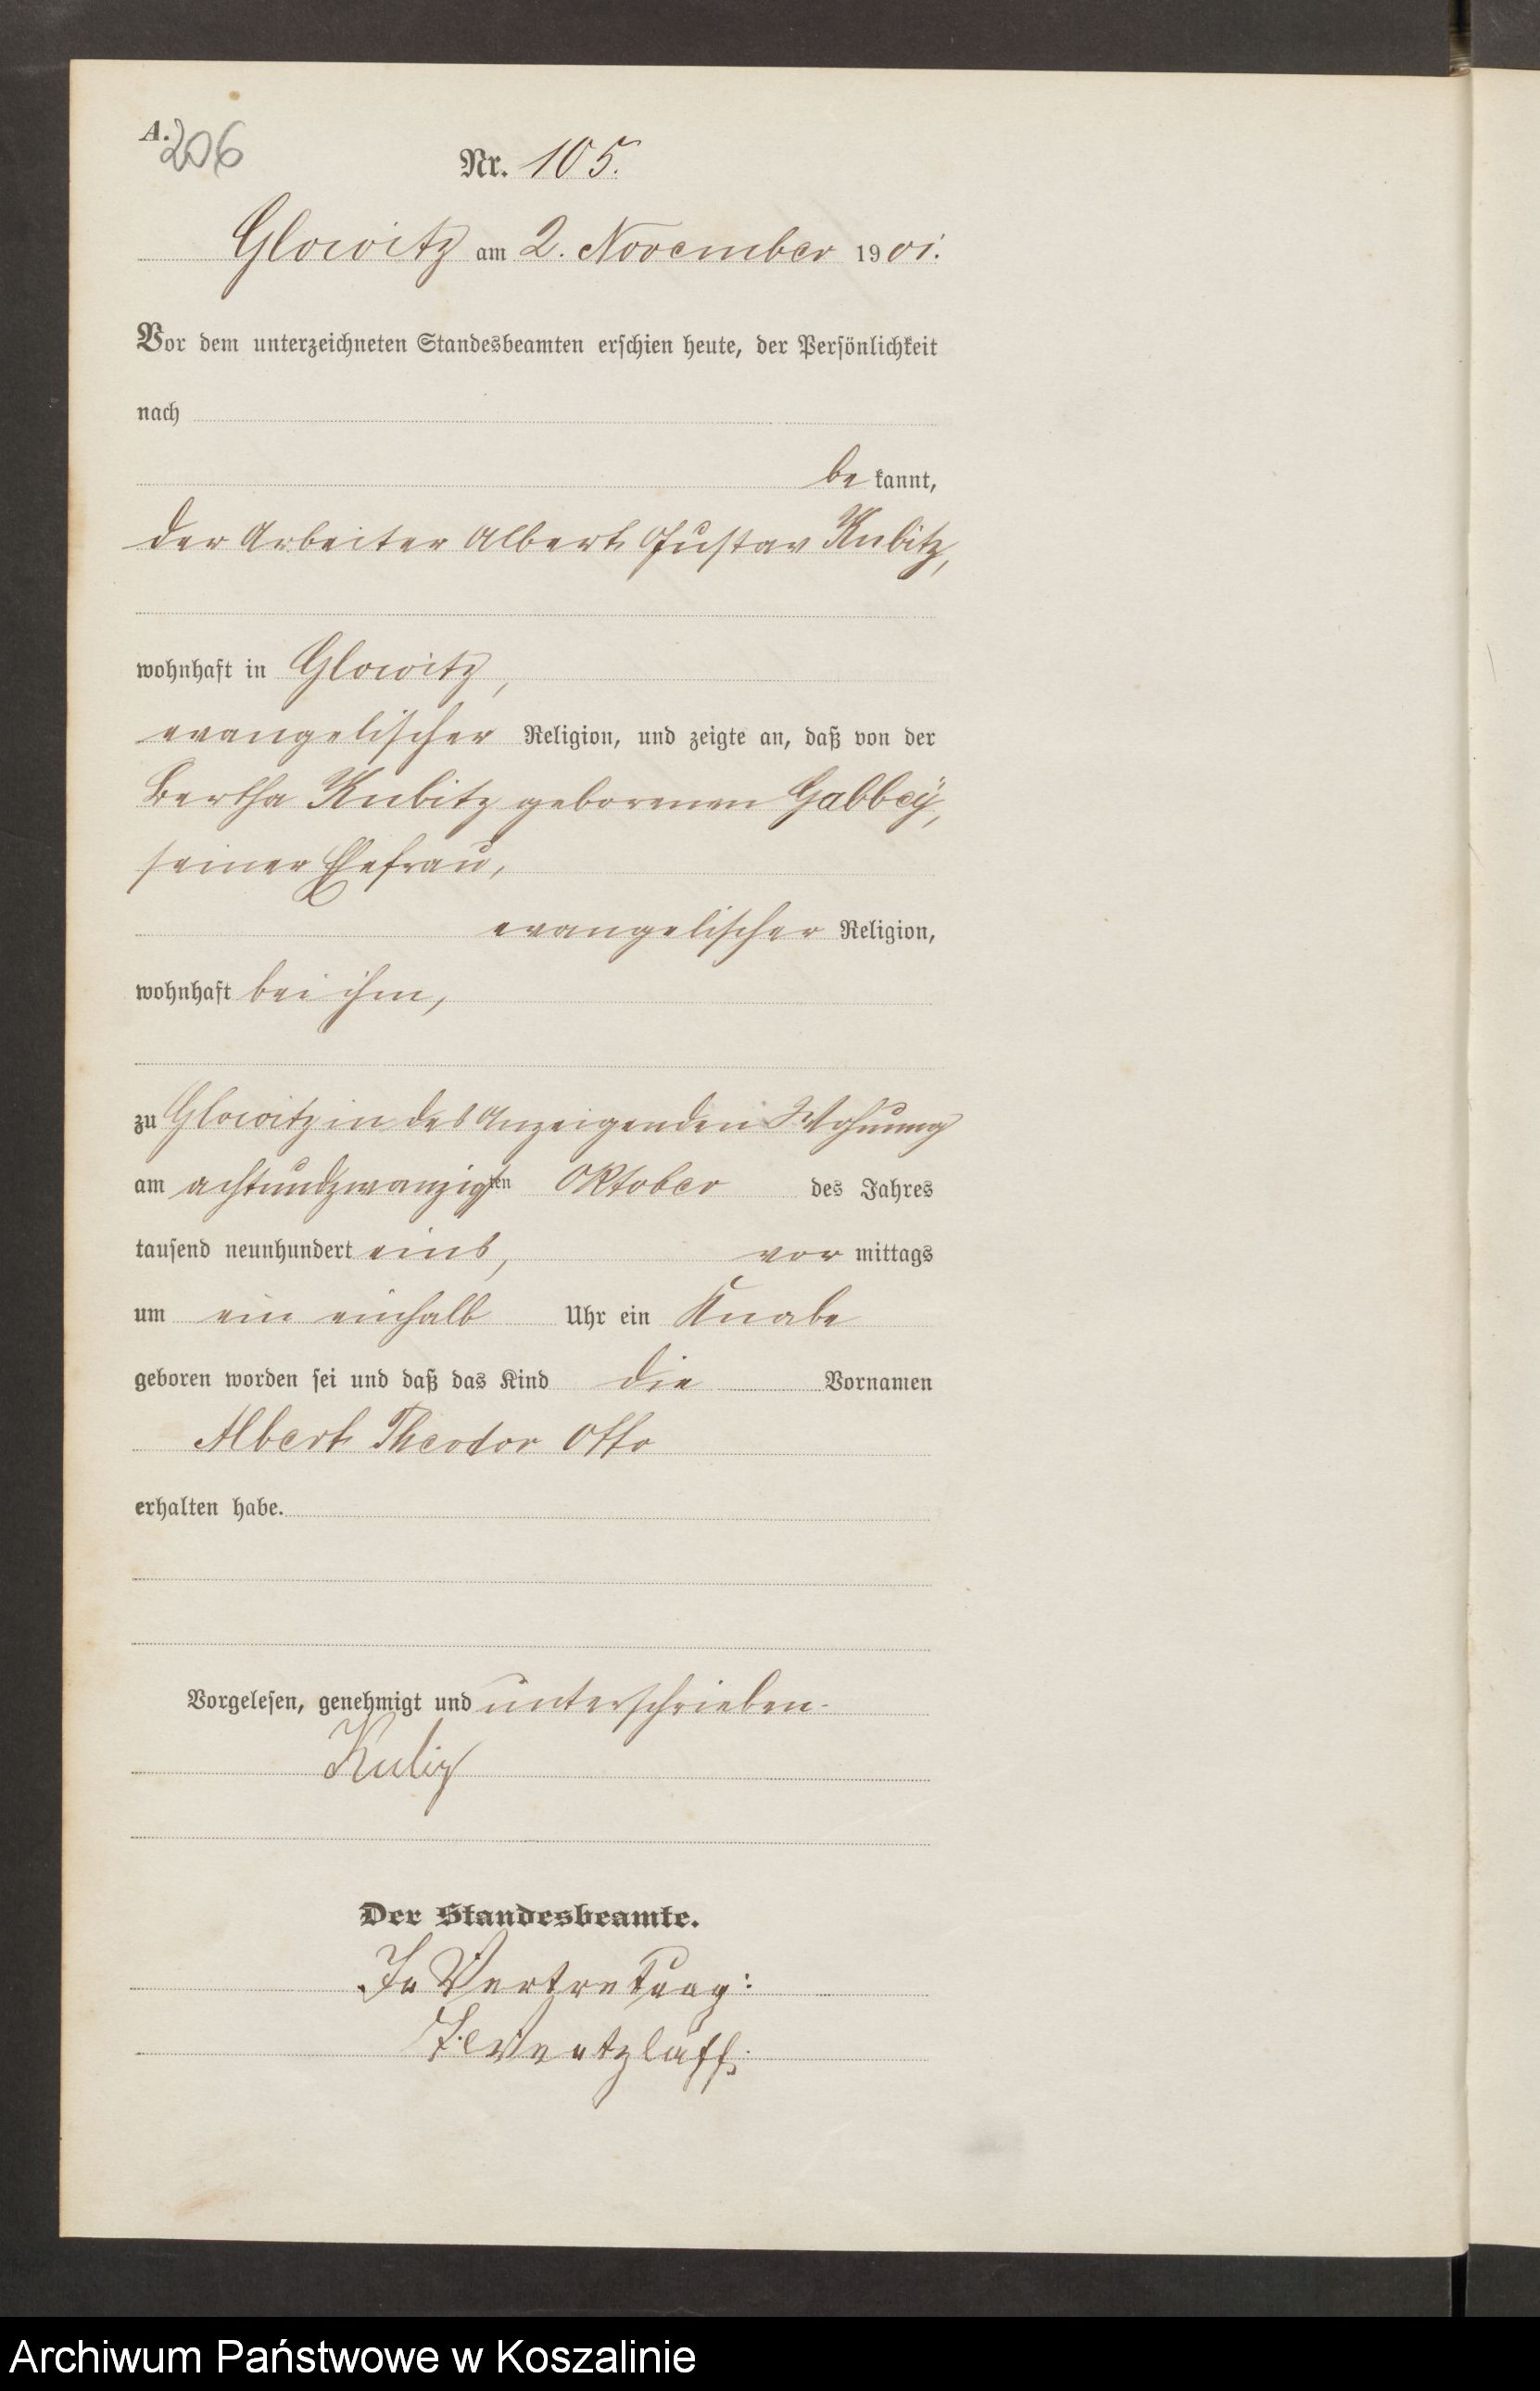 A.
206
Nr. 105.
Glowitz am 2. November 1901.
Vor dem unterzeichneten Standesbeamten erschien heute, der Persönlichkeit
nach
be kannt,
der Arbeiter Albert Gustav Kubitz,
wohnhaft in Glowitz,
evangelischer Religion, und zeigte an, daß von der
Bertha Kubitz geborenen Gabbeÿ,
seiner Ehefrau,
evangelischer Religion,
wohnhaft bei ihm,
zu Glowitz in des Anzeigenden Wohnung
am achtundzwanzigsten Oktober des Jahres
tausend neunhundert eins, vor mittags
um ein einhalb Uhr ein Knabe
geboren worden sei und daß das Kind die Vornamen
Albert Theodor Otto
erhalten habe.
Vorgelesen, genehmigt und unterschrieben.
Der Standesbeamte.
In Vertretung:
Archiwum Państwowe w Koszalinie